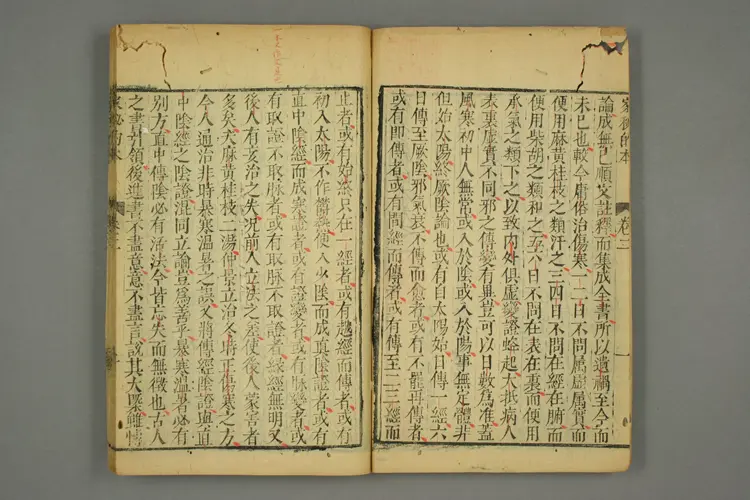 論成無已順文註釋而集成全書所以遺禍至今而
未已也較今庸俗治傷寒一二日不問屬虛屬實而
便用麻黃桂枝之類汗之三四日不問在經在腑而
便用柴胡之類和之至六日不問在表在裏而便用
承氣之類下之以致內外俱虛變證蜂起大抵病人
表裏虛實不同邪之傳變有異豈可以日數爲准蓋
風寒初中人無常或入於陰或入於陽事無定體非
但始太陽終厥陰論也或有自太陽始日傳一經六
日傳至厥陰邪氣衰不傳而愈者或有不罷再傳者
或有即傳者或有間經而傳者或有傳至一二經而
家秘的本 卷二 一
止者或有始終只在一經者或有越經而傳者或有
初入太陽不作鬱熱便入少陰而成真陰證者或有
直中陰經而成寒證者或有證變者或有脉變者或
有取證不取脉者或有取脉不取證者緣經無明文
後人有妄治之失况前人立法之差使後人蒙害者
多矣夫麻黃桂枝二湯仲景立治冬時正傷寒之方
今人通治非時暴寒溫暑之誤又將傳經陰證與直
中陰經之陰證混同立論豈爲善乎暴寒溫暑必有
別方直中傳陰必有活法今皆忘失而無徵也古人
之書引領後進書不盡意意不盡言設其大槩雖
家秘的本